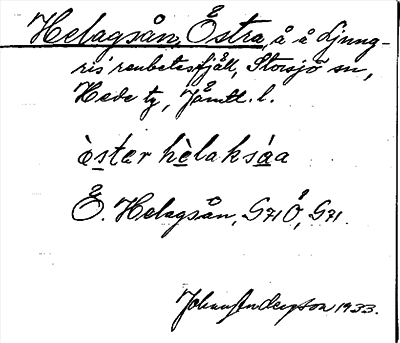 Helagsån, Östra, å å Ljung-
ris renbetesfjäll, Storsjö sn,
Hede tg, Jämtl. l.
èster hèlaksåa
Ö. Helagsån, G71Ö, G71.
1933.